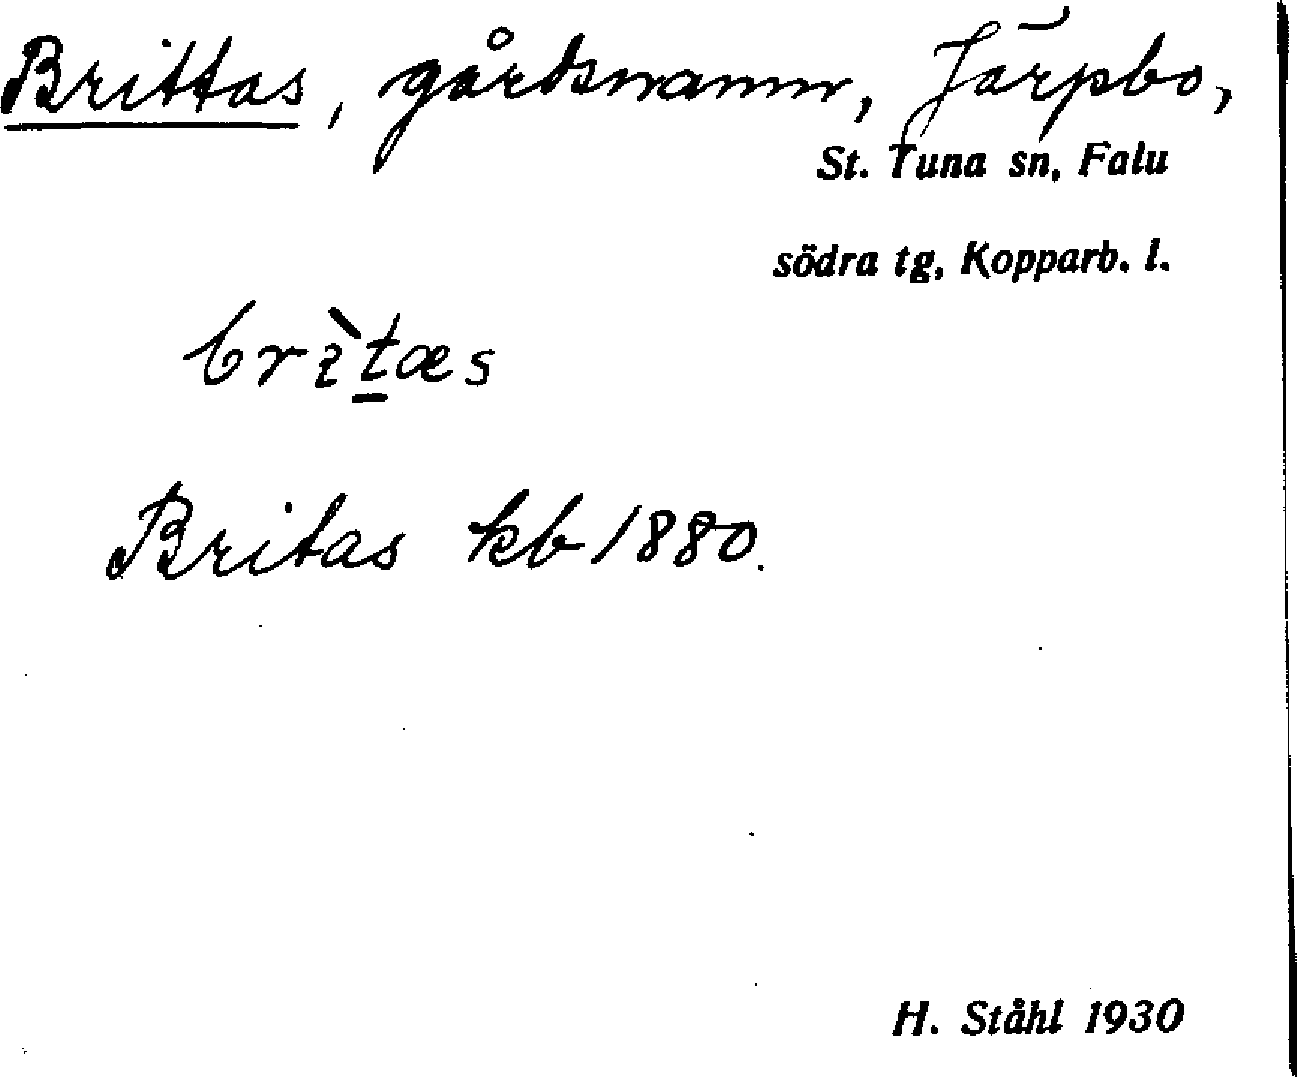 Brittas, gårdsnamn, Järpbo,
St. Tuna sn, Falu
södra tg, Kopparb. l.
brìt̲æs
Britas kb 1880.
H. Ståhl 1930